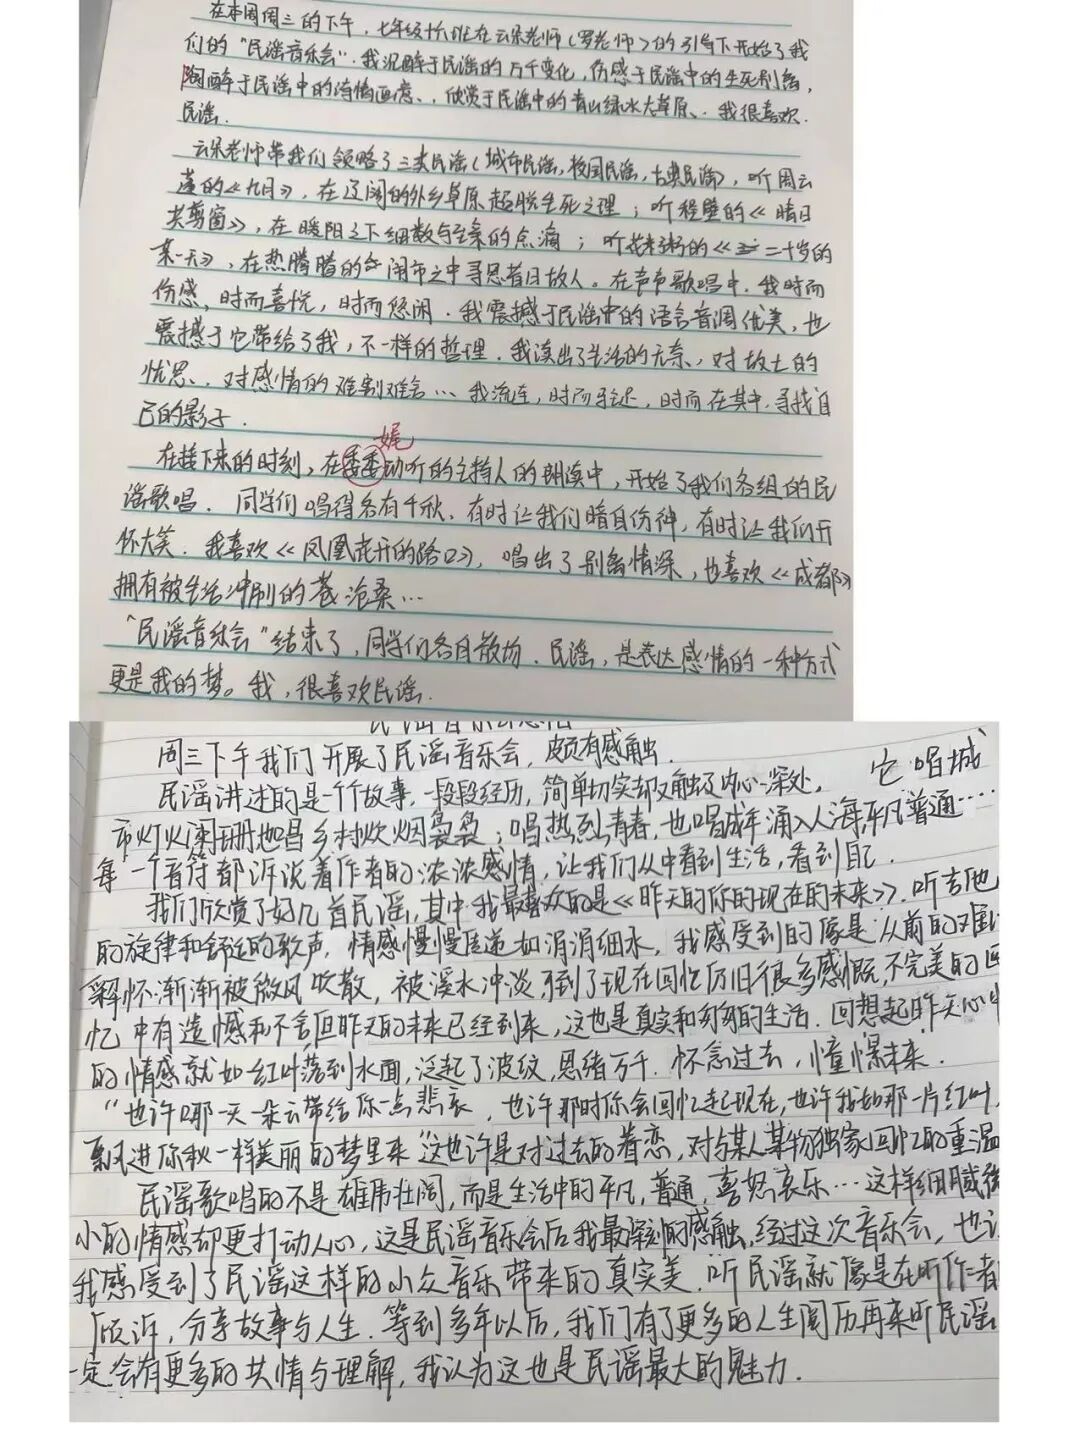 在本周周三的下午，七年级十六班在云朵老师（罗老师）的引导下开始了我
们的“民谣音乐会”．我沉醉于民谣的万千变化，伤感于民谣中的生死别离，
陶醉于民谣中的诗情画意、欣赏于民谣中的青山绿水大草原、．我很喜欢
民谣．
云朵老师带我们领略了三类民谣（城市民谣，校园民谣，古典民谣），听周云
蓬的《九月》，在辽阔的外乡草原超脱生死之理；听程璧的《晴日
共剪窗》，在暖阳之下细数与至亲的点滴；听花粥的《二十岁的
某一天》，在热腾腾的闹市之中寻思昔日故人。在声声歌唱中，我时而
伤感，时而喜悦，时而悠闲．我震撼于民谣中的语言音调优美，也
震撼于它带给了我，不一样的哲理．我读出了生活的无奈、对故土的
忧思、对感情的难割难舍…我流连，时而，时而在其中，寻找自
己的影子．
娓
在接下来的时刻，在委委动听的主持人的朗读中，开始了我们各组的民
谣歌唱．同学们唱得各有千秋，有时让我们暗自伤神，有时让我们开
怀大笑．我喜欢《凤凰花开的路口》，唱出了别离情深，也喜欢《成都》
拥有被生活冲刷的沧桑…
“民谣音乐会”结束了，同学们各自散场．民谣，是表达感情的一种方式
更是我的梦。我，很喜欢民谣．
民谣音乐会感悟
周三下午我们开展了民谣音乐会，颇有感触．
民谣讲述的是一个个故事，一段段经历，简单切实却又触及内心深处，它唱城
市灯火阑珊，也唱乡村炊烟袅袅；唱热烈青春，也唱成年涌入人海，平凡普通……
每一个音符都诉说着作者的浓浓感情，让我们从中看到生活，看到自己．
我们欣赏了好几首民谣，其中我最喜欢的是《昨天的你的现在的未来》．听吉他
的旋律和舒适的歌声，情感慢慢传递如涓涓细水，我感受到的像是从前的难以
释怀渐渐被微风吹散，被溪水冲淡，到了现在回忆仍旧很多感慨，不完美的回
忆中有遗憾和不舍，但昨天的未来已经到来，这也是真实和匆匆的生活．回想起昨天心中
的情感就如红叶落到水面，泛起了波纹，思绪万千．怀念过去，憧憬未来．
“也许哪一天一朵云带给你一点悲哀，也许那时你会回忆起现在，也许我如那一片红叶，
飘进你秋一样美丽的梦里来”这也许是对过去的眷恋，对与某人某物独家回忆的重温
民谣歌唱的不是雄伟壮阔，而是生活中的平凡，普通，喜怒哀乐…这样细腻微
小的情感却更打动人心，这是民谣音乐会后我最深刻的感触，经过这次音乐会，也让
我感受到了民谣这样的小众音乐带来的真实美．听民谣就像是在听作者
倾诉，分享故事与人生．等到多年以后，我们有了更多的人生阅历再来听民谣，
一定会有更多的共情与理解，我认为这也是民谣最大的魅力．